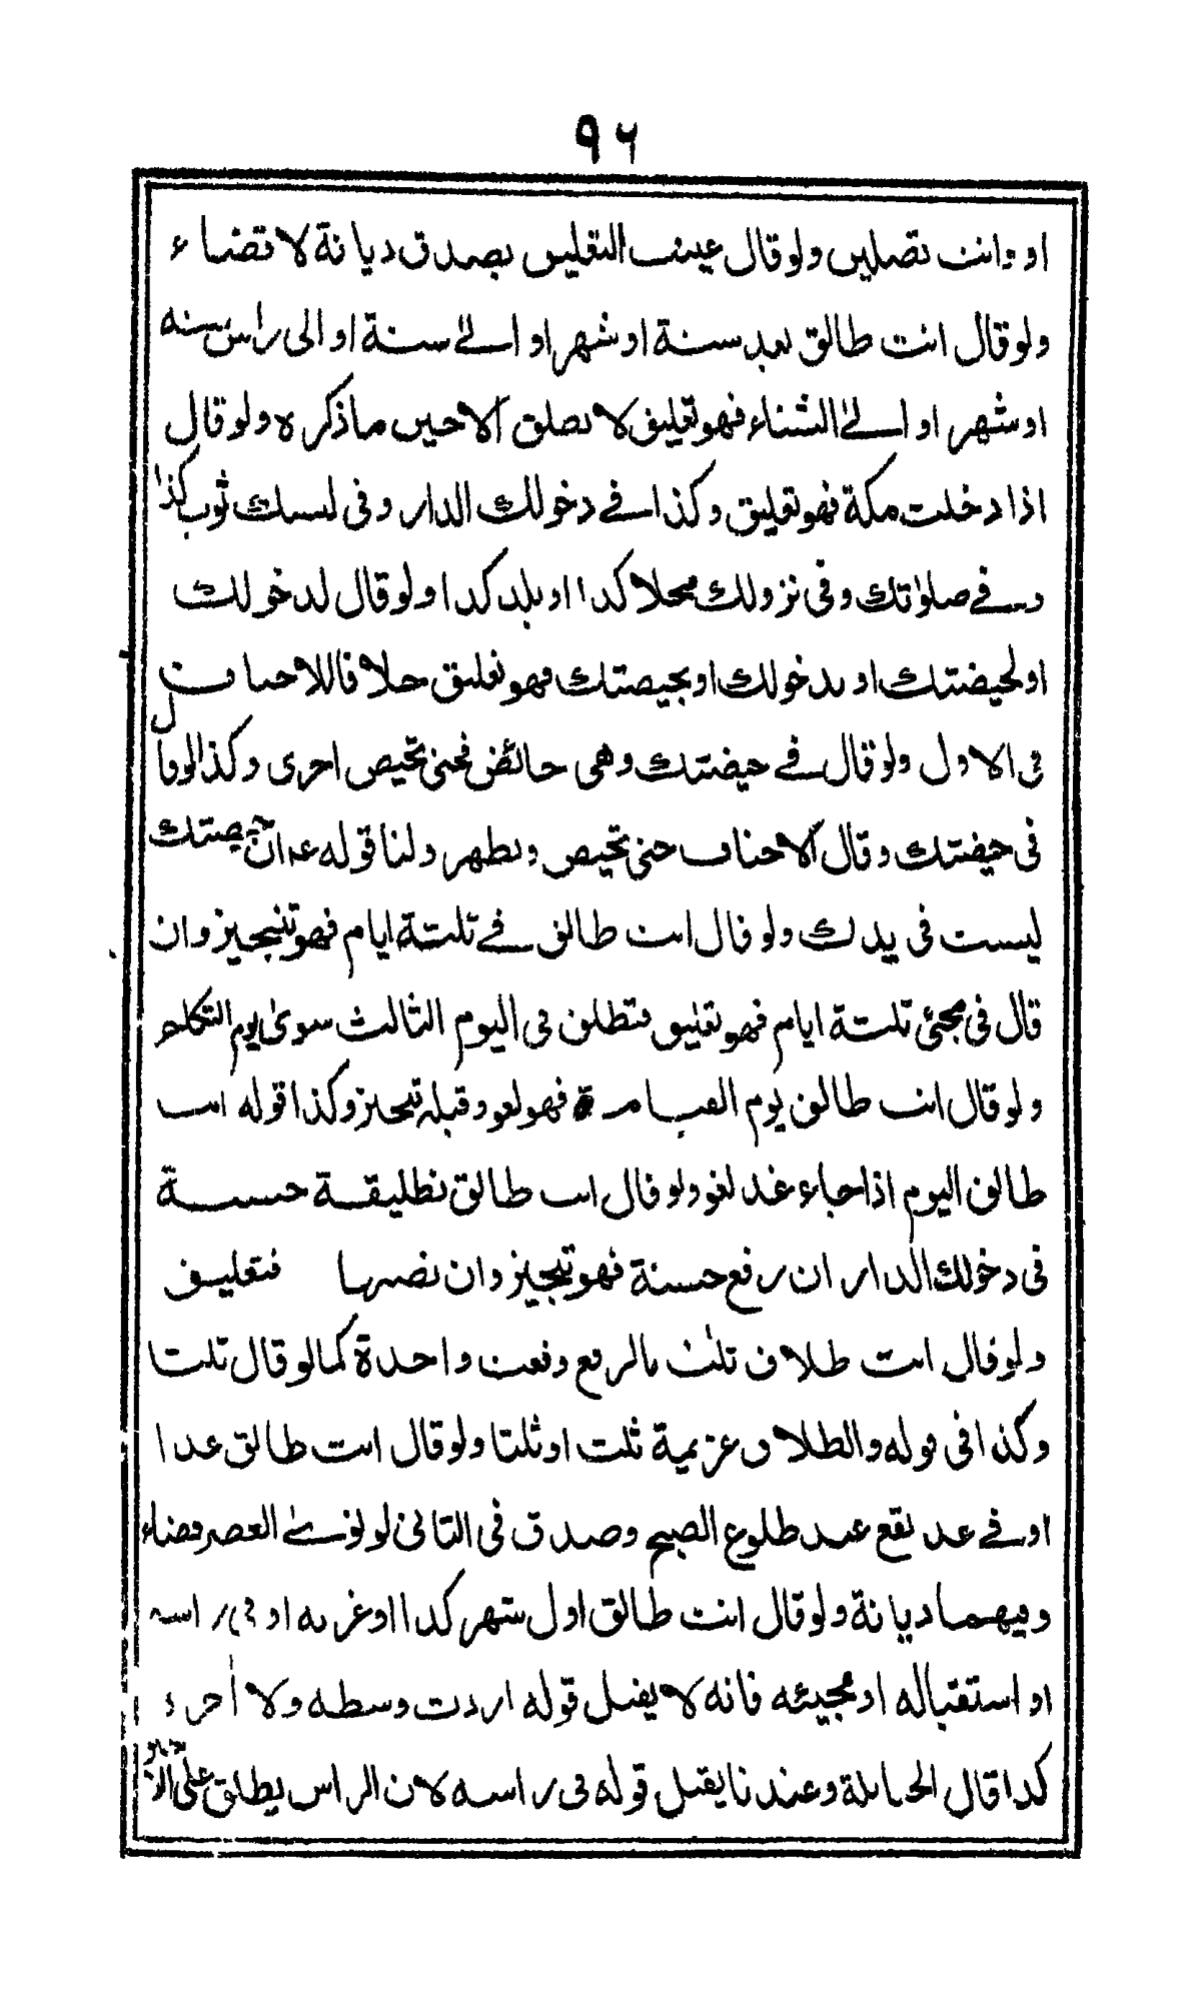 ٩٦
او وانت تصلين ولو قال عينت التعليق يصدق ديانة لا قضاء
ولو قال انت طالق بعد سنة او شهر او الى سنة او الى راس سنه
او شهر او الى الشتاء فهو تعليق لا تطلق الا حين ما ذكره ولو قال
اذا دخلت مكة فهو تعليق وكذا في دخولك الدار وفى لبسك ثوب كذا
وفي صلوٰتك وفى نزولك محلا كذا او بلد كذا ولو قال لدخولك
او لحيضتك او بدخولك او بحيضتك فهو تعليق خلافا للاحناف
فى الاول ولو قال في حيضتك وهى حائض فحتى تحيض اخرى وكذا لو قال
فى حيضتك وقال الاحناف حتى تحيض وتطهر ولنا قوله ان حيضتك
ليست فى يدك ولو قال انت طالق في ثلثة ايام فهو تنجيز وان
قال فى مجئى ثلثة ايام فهو تعليق فتطلق فى اليوم الثالث سوىٰ يوم التكلم
ولو قال انت طالق يوم القيامة فهو لغو وقبله تنجيز وكذا قوله انت
طالق اليوم اذا جاء غد لغو ولو قال انت طالق تطليقة حسنة
فى دخولك الدار ان رفع حسنة فهو تنجيز وان نصبها فتعليق
ولو قال انت طلاق ثلث بالرفع وقعت واحدة كما لو قال ثلثا
وكذا فى قوله والطلاق عزيمة ثلث او ثلثا ولو قال انت طالق غدا
او في غد يقع عند طلوع الصبح وصدق فى الثانى لو نوىٰ العصر قضاء
وفيهما ديانة ولو قال انت طالق اول شهر كذا او غرته او فى راسه
او استقباله او مجيئه فانه لا يقبل قوله اردت وسطه ولا اٰخره
كذا قال الحنابلة وعندنا يقبل قوله فى راسه لان الراس يطلق على